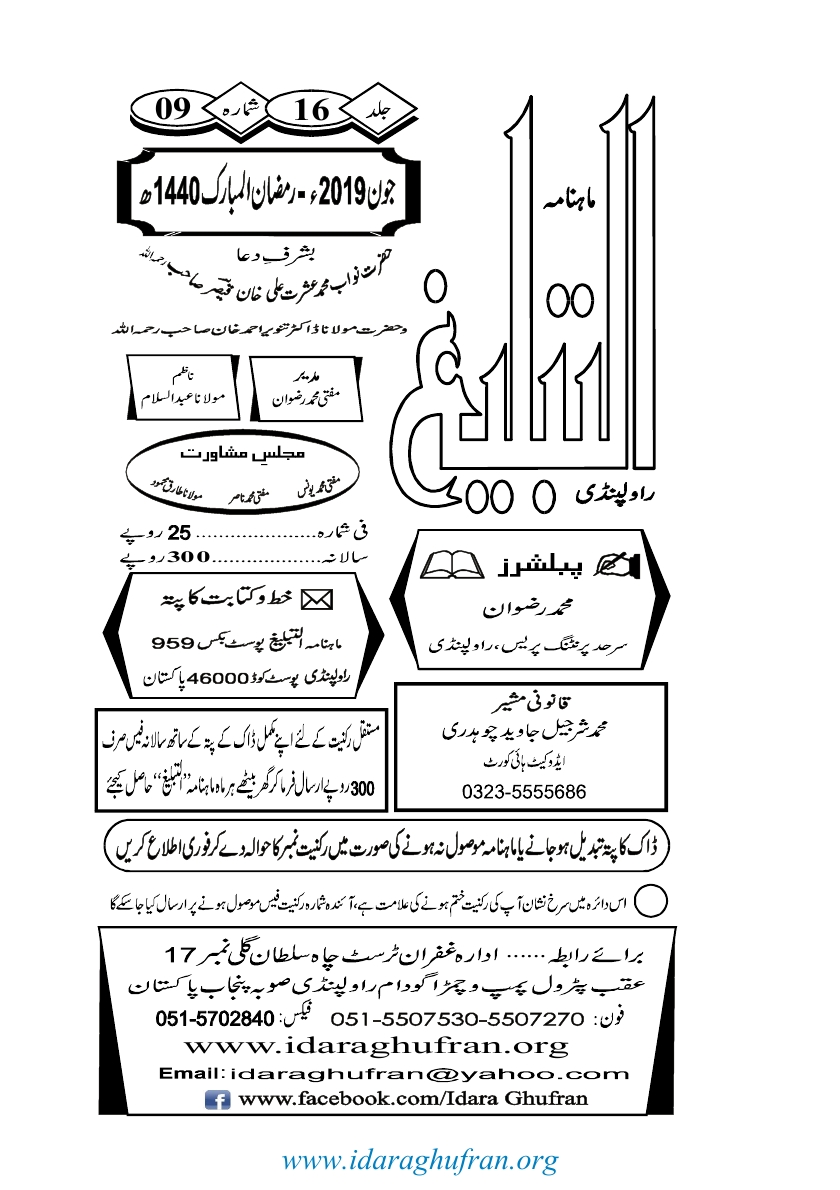 جلد 16 شمارہ 09
جون 2019ء - رمضان المبارک 1440ھ
ماہنامہ
التبلیغ
راولپنڈی
بشرفِ دعا
حضرت نواب محمد عشرت علی خان قیصر صاحب رحمہ اللہ
وحضرت مولانا ڈاکٹر تنویر احمد خان صاحب رحمہ اللہ
مدیر
مفتی محمد رضوان
ناظم
مولانا عبدالسلام
مجلسِ مشاورت
مفتی محمد یونس مفتی محمد ناصر مولانا طارق محمود
فی شمارہ.................... 25 روپے
سالانہ...................300 روپے
پبلشرز
محمد رضوان
سرحد پرنٹنگ پریس، راولپنڈی
خط و کتابت کا پتہ
ماہنامہ التبلیغ پوسٹ بکس 959
راولپنڈی پوسٹ کوڈ 46000 پاکستان
قانونی مشیر
محمد شرجیل جاوید چوہدری
ایڈوکیٹ ہائی کورٹ
0323-5555686
مستقل رکنیت کے لئے اپنے مکمل ڈاک کے پتہ کے ساتھ سالانہ فیس صرف
300 روپے ارسال فرما کر گھر بیٹھے ہر ماہ ماہنامہ "التبلیغ" حاصل کیجئے
ڈاک کا پتہ تبدیل ہو جانے یا ماہنامہ موصول نہ ہونے کی صورت میں رکنیت نمبر کا حوالہ دے کر فوری اطلاع کریں
اس دائرہ میں سرخ نشان آپ کی رکنیت ختم ہونے کی علامت ہے، آئندہ شمارہ رکنیت فیس موصول ہونے پر ارسال کیا جا سکے گا
برائے رابطہ ...... ادارہ غفران ٹرسٹ چاہ سلطان گلی نمبر 17
عقب پٹرول پمپ و چمڑا گودام راولپنڈی صوبہ پنجاب پاکستان
فون: 051-5507530-5507270 فیکس: 051-5702840
www.idaraghufran.org
Email: idaraghufran@yahoo.com
www.facebook.com/Idara Ghufran
www.idaraghufran.org